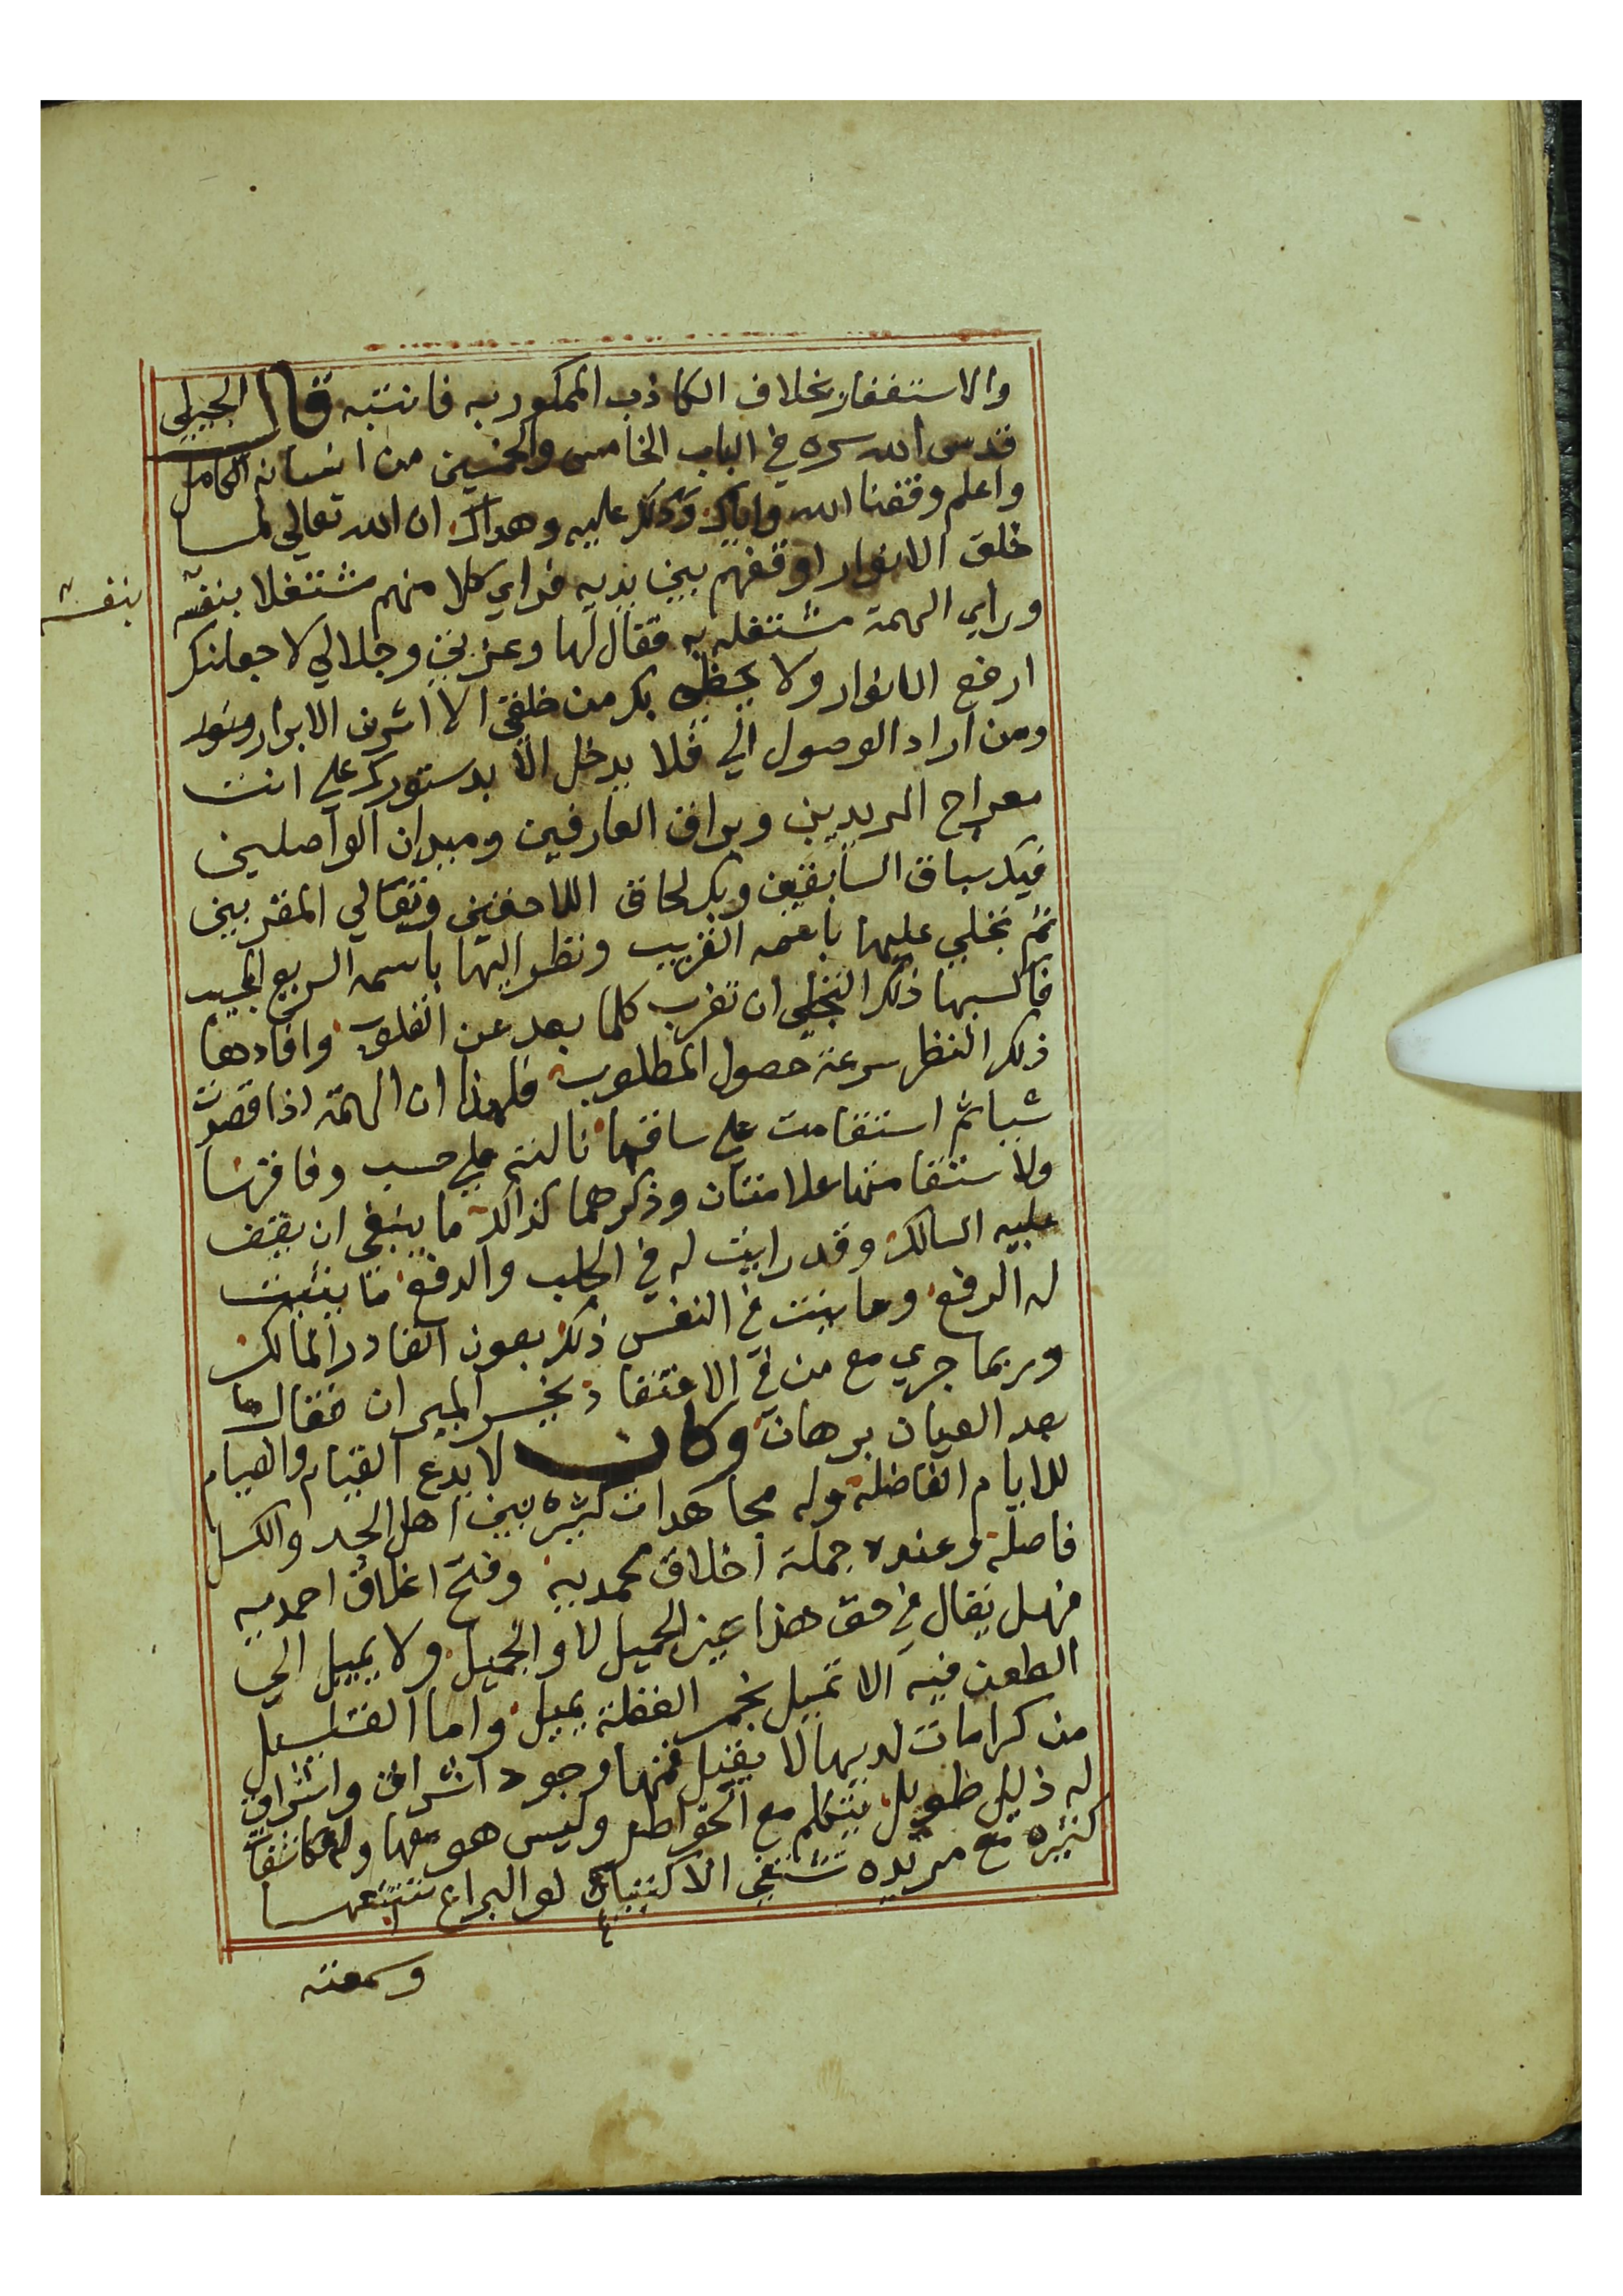 والاستغفار بخلاف الكاذب الممكور به فانتبه قال الجيلي
قدس الله سره في الباب الخامس والخمسين من انسانه الكامل
واعلم وفقنا الله واياك ودلك عليه وهداك ان الله تعالي لما
خلق الانوار اوقفهم بين يديه فراي كلا منهم مشتغلا بنفسه
بنفسه
وراي الهمة مشتغله به فقال لها وعزتي وجلالي لاجعلنك
ارفع الانوار ولا يحظي بك من خلقي الا اشرف الابرار
ومن اراد الوصول الي فلا يدخل الا بدستورك علي انت
معراج المريدين وبراق العارفين وميدان الواصلين
فيك سباق السابقين وبك لحاق اللاحقين وتعالي المقربين
ثم تجلي عليها باسمه القريب ونظر اليها باسمه السريع المجيب
فاكسبها ذلك التجلي ان تقرب كلما بعد عن القلوب وافادها
ذلك النظر سرعة حصول المطلوب فلهذا ان الهمة اذا قصدت
شيا ثم استقامت علي ساقها نالته علي حسب وفاقها
ولاستقامتها علامتان وذكرهما كذالك ما ينبغي ان يقف
عليه السالك وقد رايت له في الجلب والدفع ما يثبت
له الرفع وما يثبت في النفس ذلك بعون القادر المالك
وربما جري مع من في الاعتقاد يخسر الميزان فقال ما
بعد العيان برهان وكان لا يدع القيام والصيام
للايام الفاضلة وله مجاهدات كثيره بين اهل الجد والكسل
فاصلة وعنده جملة اخلاق محمديه وفتح اغلاق احمديه
فهل يقال في حق هذا غير الجميل لا والجميل ولا يميل الي
الطعن فيه الا ثميل بخمر الغفلة يميل واما القليل
من كرامات لديها لا يقبل فمنها وجود اشراف واشراق
له ذيل طويل يتكلم مع الخواطر وليس هو معها وله مكاشفات
كثيره مع مريده تنفي الاكتياب لو اليراع تتبعها
وسمعته